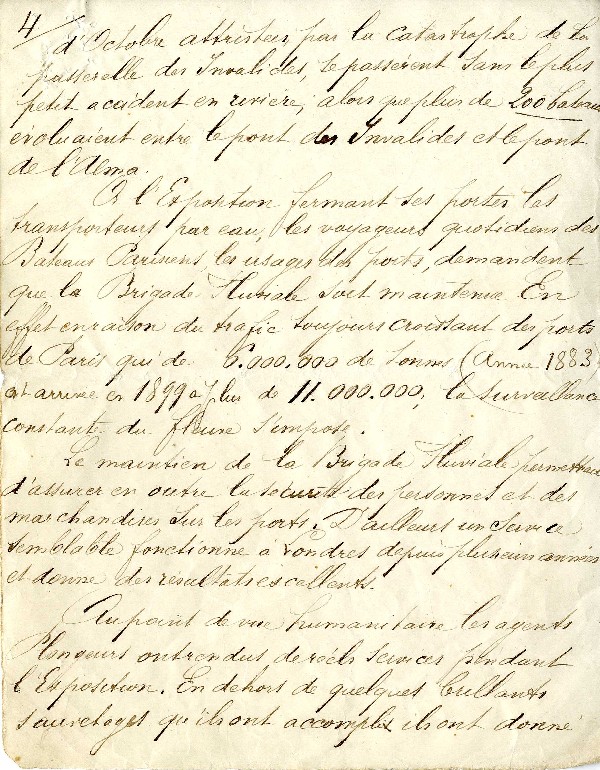 4/
d'Octobre attristées par la catastrophe de la
passerelle des Invalides, se passèrent sans le plus
petit accident en rivière, alors que plus de 200 bateaux
évoluaient entre le pont des Invalides et le pont
de l'Alma.
A l'Exposition fermant ses portes les
transporteurs par eau, les voyageurs quotidiens des
Bateaux Parisiens, les usagés des ports, demandent
que la Brigade Fluviale soit maintenue. En
effet en raison du trafic toujours croissant des ports
de Paris qui de 6.000.000 de tonnes (Année 1883)
est arrivée en 1899 à plus de 11.000.000, la surveillance
constante du fleuve s'impose.
Le maintien de la Brigade Fluviale permettrait
d'assurer en outre la sécurité des personnes et des
marchandises sur les ports. D'ailleurs un service
semblable fonctionne à Londres depuis plusieurs années
et donne des résultats excellents.
Au point de vue humanitaire les agents
Plongeurs ont rendus de réels services pendant
l'Exposition. En dehors de quelques brillants
sauvetages qu'ils ont accomplis ils ont donné